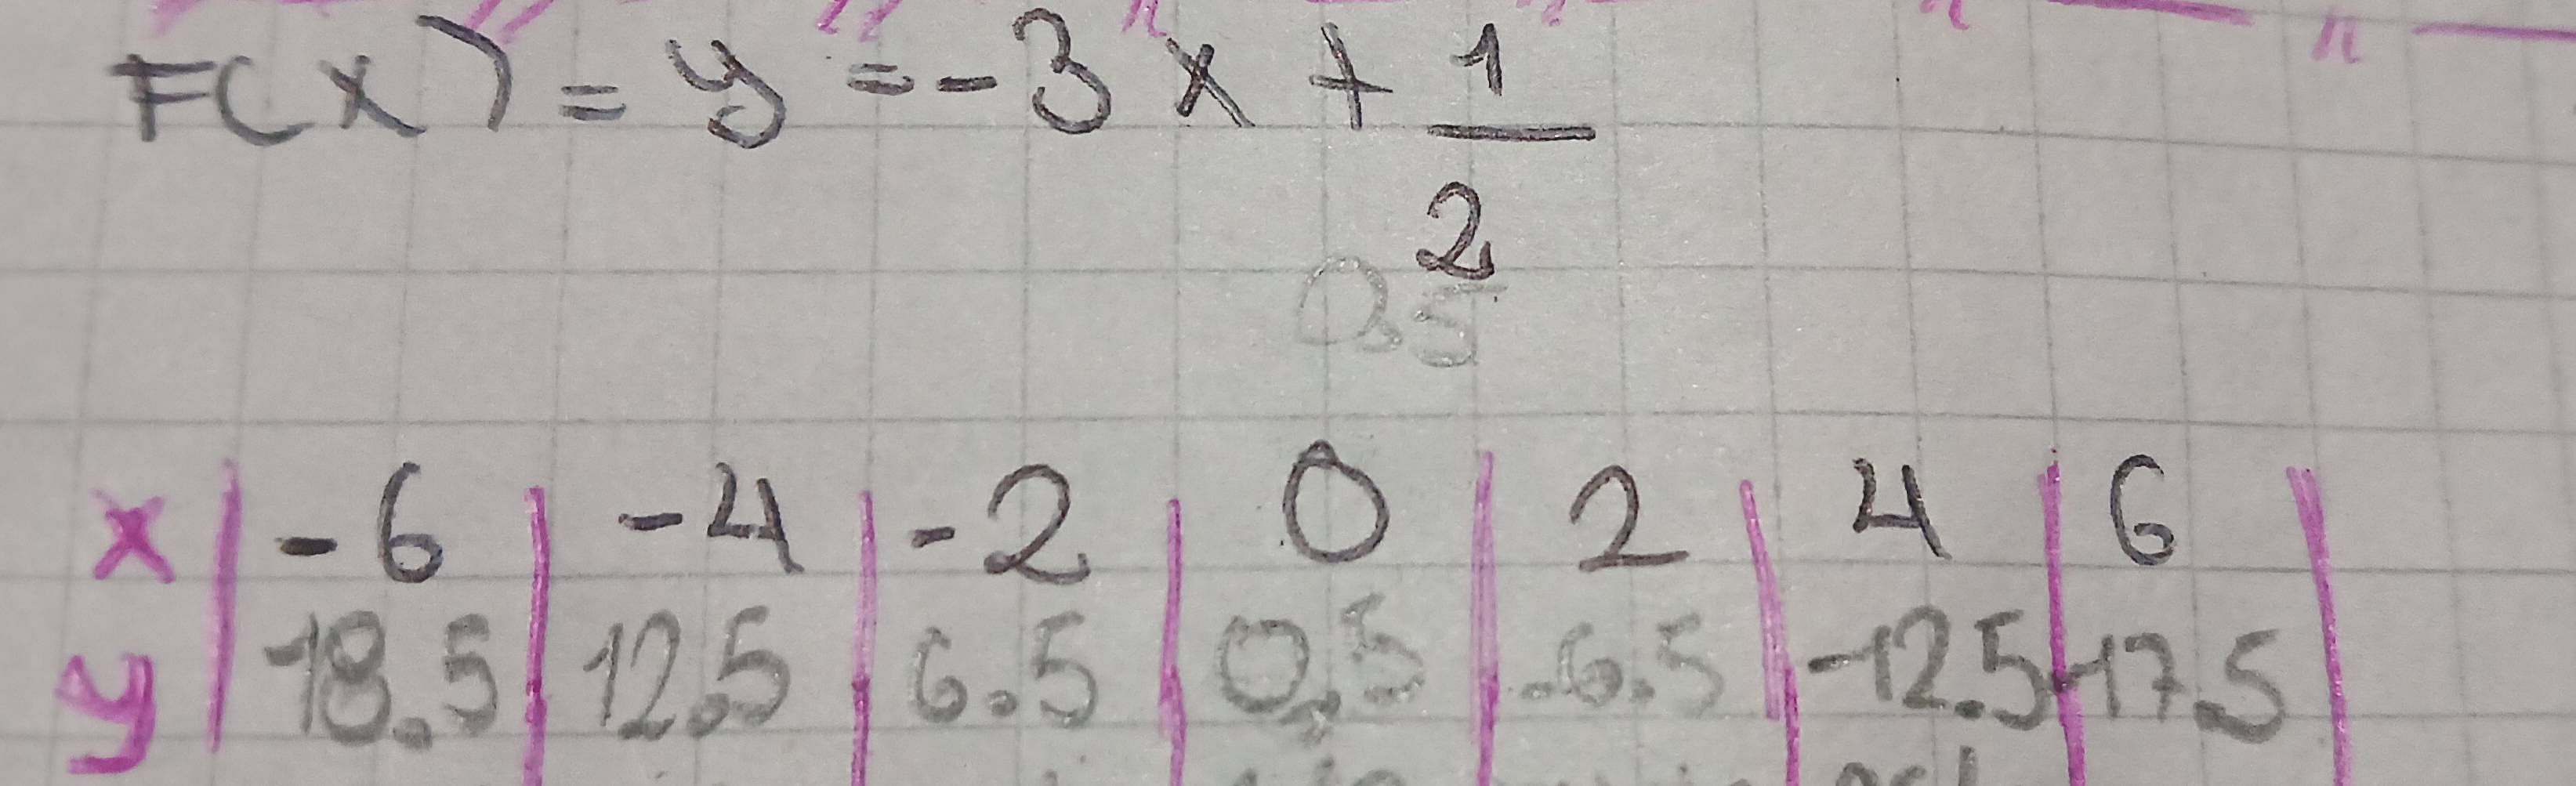 F(x) = y = -3x + 1/2
0.5
x | -6 | -4 | -2 | 0 | 2 | 4 | 6 |
y | 18.5 | 12.5 | 6.5 | 0.5 | -6.5 | -12.5 | -17.5 |